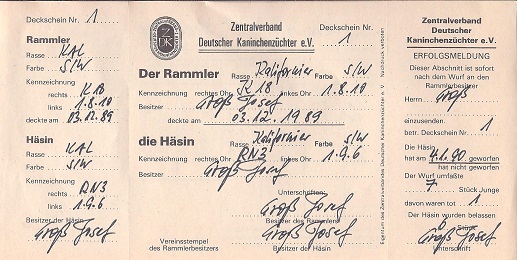 Deckschein Nr. 1
Rammler
Rasse KAL
Farbe S/W
Kennzeichnung
rechts K18
links 1.8.10
deckte am
03.12.89
Häsin
Rasse KAL
Farbe S/W
Kennzeichnung
rechts RN3
links 1.9.6
Besitzer der Häsin
Groß Josef
ZDK
Zentralverband
Deutscher Kaninchenzüchter e.V.
Deckschein Nr.
1
Der Rammler Rasse Kalifornier Farbe S/W
Kennzeichnung rechtes Ohr K18 linkes Ohr 1.8.10
Besitzer Groß Josef
deckte am 03.12.1989
die Häsin Rasse Kalifornier Farbe S/W
Kennzeichnung rechtes Ohr RN3 linkes Ohr 1.9.6
Besitzer Groß Josef
Unterschriften:
Groß Josef
Besitzer des Rammlers
Groß Josef
Vereinsstempel
des Rammlerbesitzers
Besitzer der Häsin
Nachdruck verboten
Eigentum des Zentralverbandes Deutscher Kaninchenzüchter e.V.
Zentralverband
Deutscher
Kaninchenzüchter e.V.
ERFOLGSMELDUNG
Dieser Abschnitt ist sofort
nach dem Wurf an den
Rammlerbesitzer
Herrn Groß
einzusenden.
betr. Deckschein Nr. 1
Die Häsin
hat am 4.1.90 geworfen
hat nicht geworfen
Der Wurf umfaßte
7 Stück Junge
davon waren tot 1
Der Häsin wurden belassen
6 Stück
Groß Josef
Unterschrift